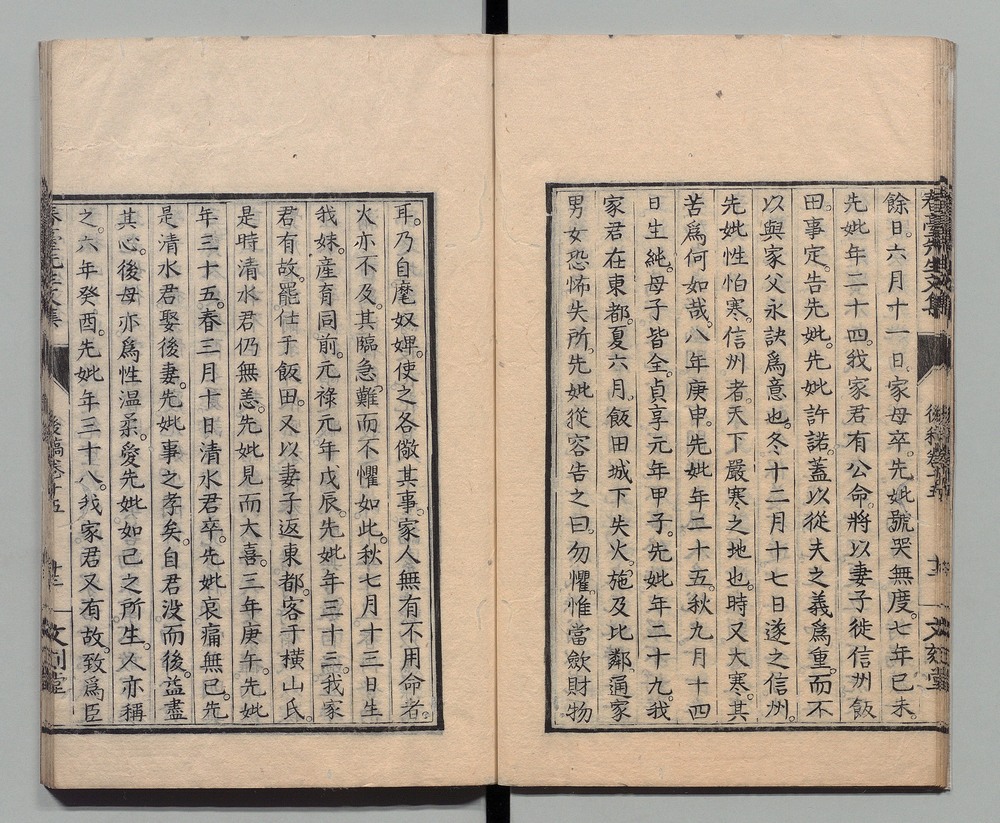 餘日。六月十一日。家母卒。先妣號哭無度。七年己未。
先妣年二十四。我家君有公命。將以妻子徙信州飯
田。事定。告先妣。先妣許諾。蓋以從夫之義爲重。而不
以與家父永訣爲意也。冬十二月十七日遂之信州。
先妣性怕寒。信州者。天下嚴寒之地也。時又大寒。其
苦爲何如哉。八年庚申。先妣年二十五。秋九月十四
日生純。母子皆全。貞享元年甲子。先妣年二十九。我
家君在東都。夏六月。飯田城下失火。施及比鄰。逼家
男女恐怖失所。先妣從容告之曰。勿懼。惟當斂財物
耳。乃自麾奴婢。使之各儆其事。家人無有不用命者。
火亦不及。其臨急難而不懼如此。秋七月十三日生
我妹。產育同前。元祿元年戊辰。先妣年三十三。我家
君有故。罷仕于飯田。又以妻子返東都。客于橫山氏。
是時清水君仍無恙。先妣見而大喜。三年庚午。先妣
年三十五。春三月十日清水君卒。先妣哀痛無已。先
是清水君娶後妻。先妣事之孝矣。自君沒而後。益盡
其心。後母亦爲性温柔。愛先妣如己之所生。人亦稱
之。六年癸酉。先妣年三十八。我家君又有故。致爲臣
後稿卷十五
文刻堂